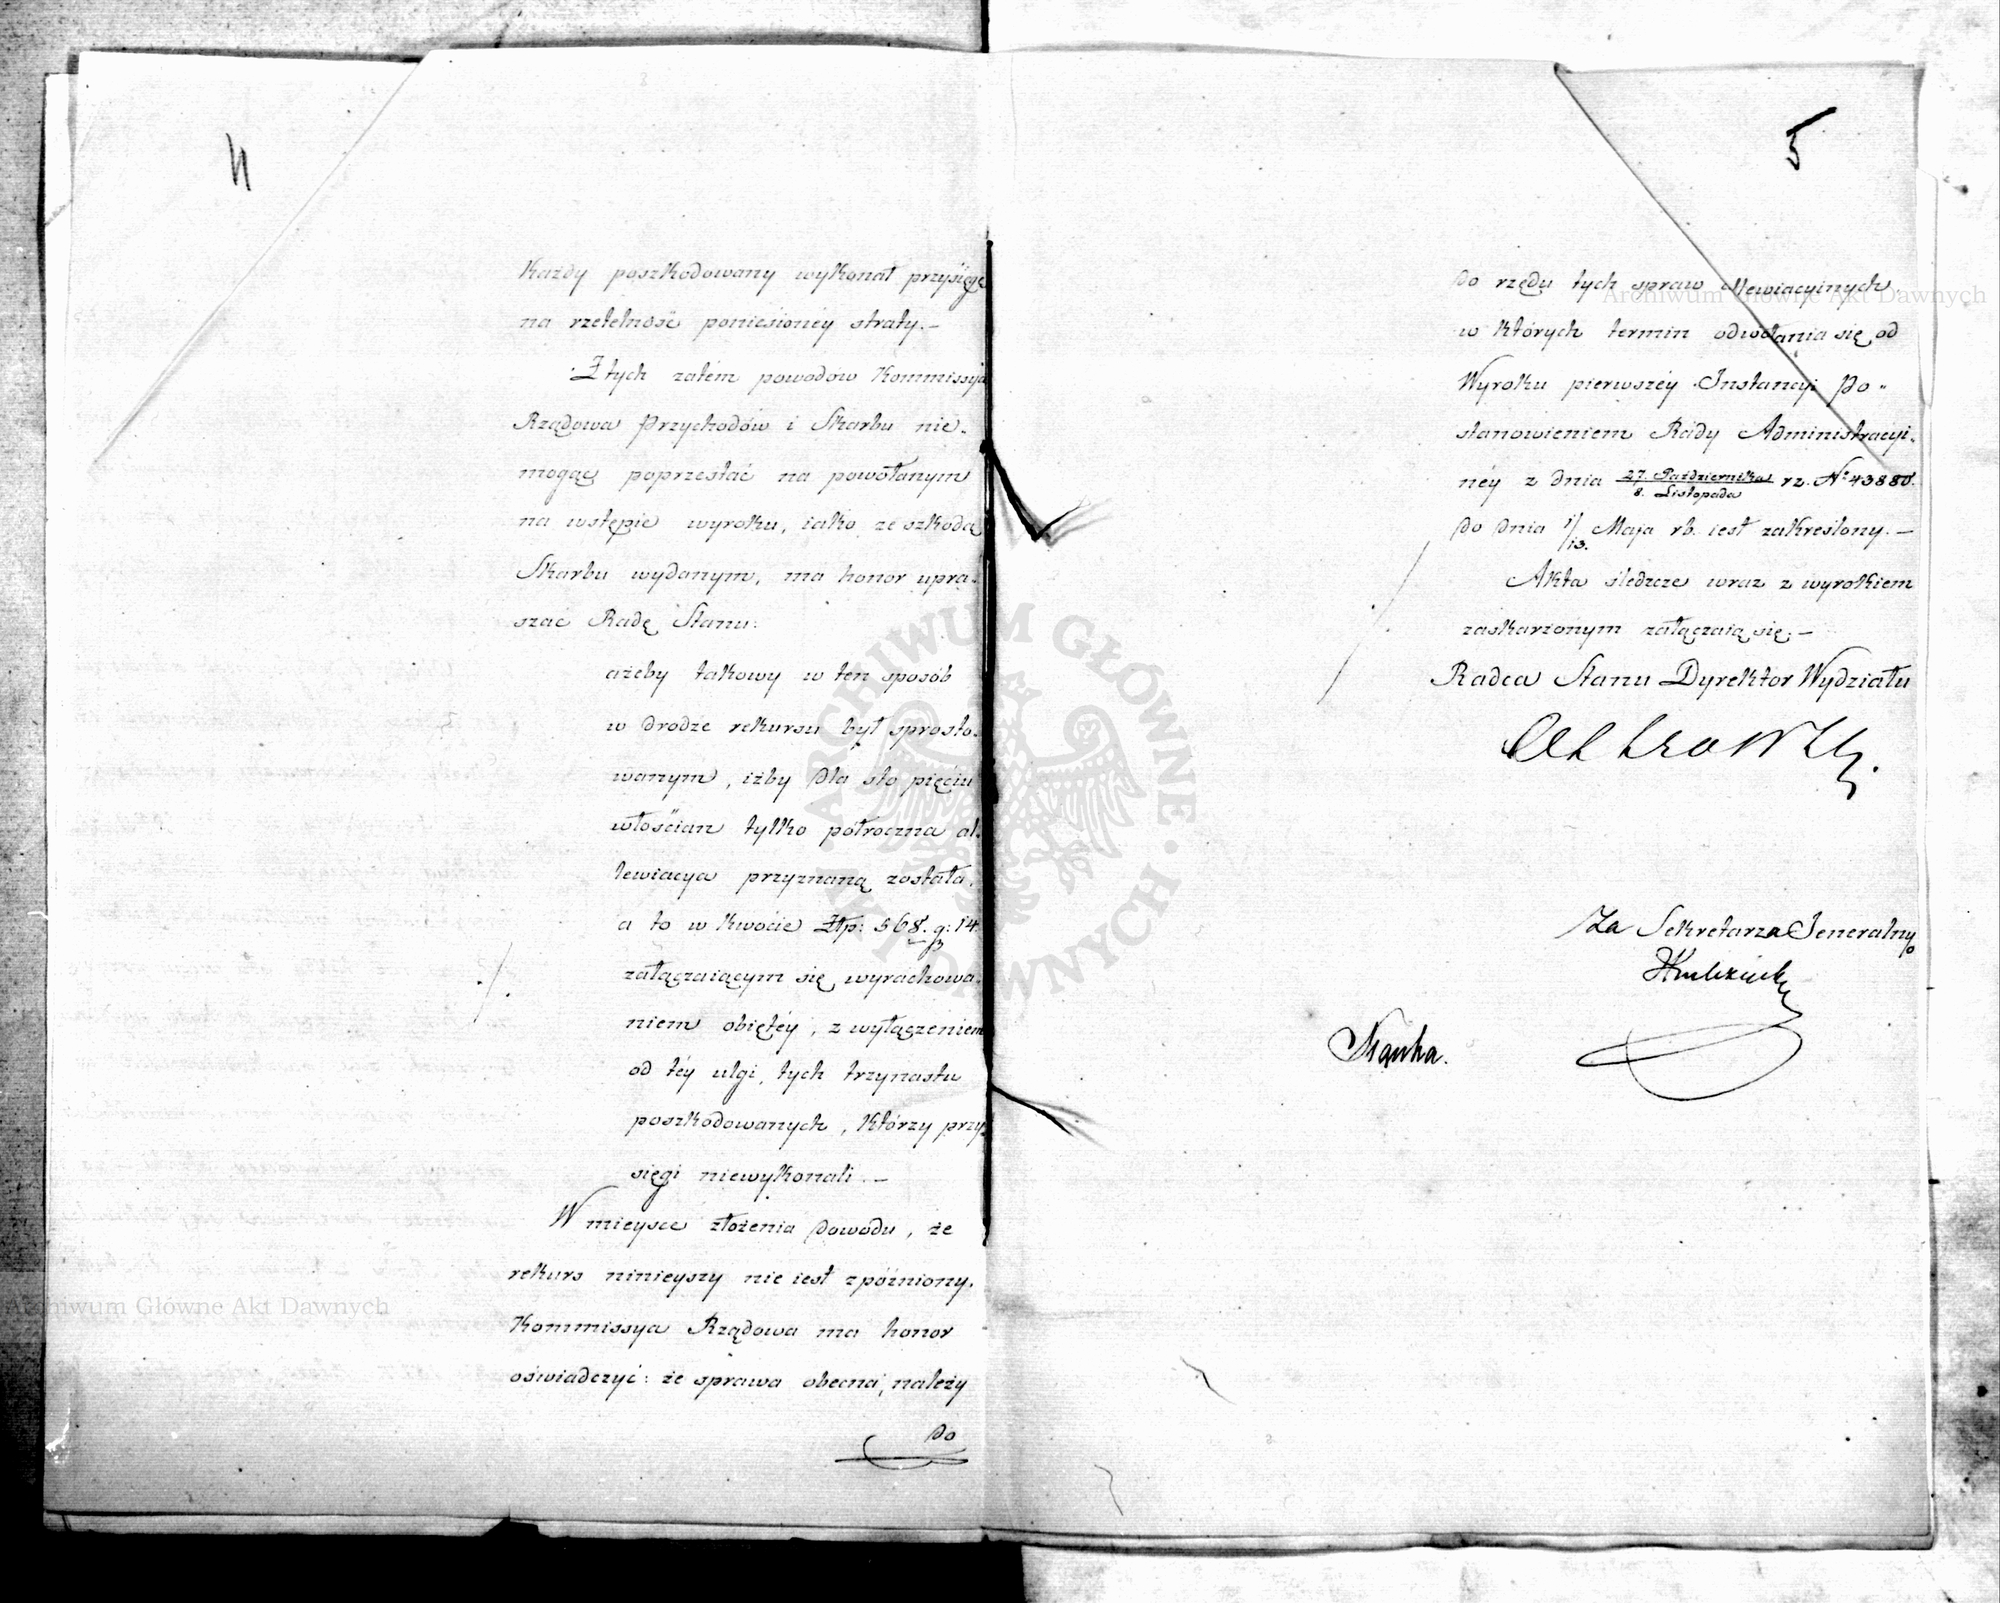 4
Każdy poszkodowany wykonał przysięgę
na rzetelność poniesionéy straty.—
Z tych zatem powodów Kommissya
Rządowa Przychodów i Skarbu nie-
mogąc poprzestać na powołanym
na wstępie wyroku, iako ze szkodą
Skarbu wydanym, ma honor upra-
szać Radę Stanu:
ażeby takowy w ten sposób
w drodze rekursu był sprosto-
wanym, iżby dla sto pięciu
włościan tylko półroczna al-
lewiacya przyznaną została,
a to w kwocie Złp: 568. g: 14
załączaiącym się wyrachowa-
niem obiętéy, z wyłączeniem
od téy ulgi, tych trzynastu
poszkodowanych, którzy przy-
sięgi niewykonali.—
W mieysce złożenia dowodu, że
rekurs ninieyszy nie iest zpóźniony,
Kommissya Rządowa ma honor
oświadczyć: że sprawa obecna, należy
do
5
do rzędu tych spraw allewiacyinych,
w których termin odwołania się od
Wyroku pierwszéy Instancyi Po-
stanowieniem Rady Administracyi-
néy z dnia 27. Października / 8. Listopada rz. Nº 43880.
do dnia 1/13. Maja rb. iest zakreślony.—
Akta śledcze wraz z wyrokiem
zaskarżonym załączaią się.—
Radca Stanu Dyrektor Wydziału
Za Sekretarza Jeneralnego
Archiwum Główne Akt Dawnych
Archiwum Główne Akt Dawnych
ARCHIWUM GŁÓWNE · AKT DAWNYCH ·